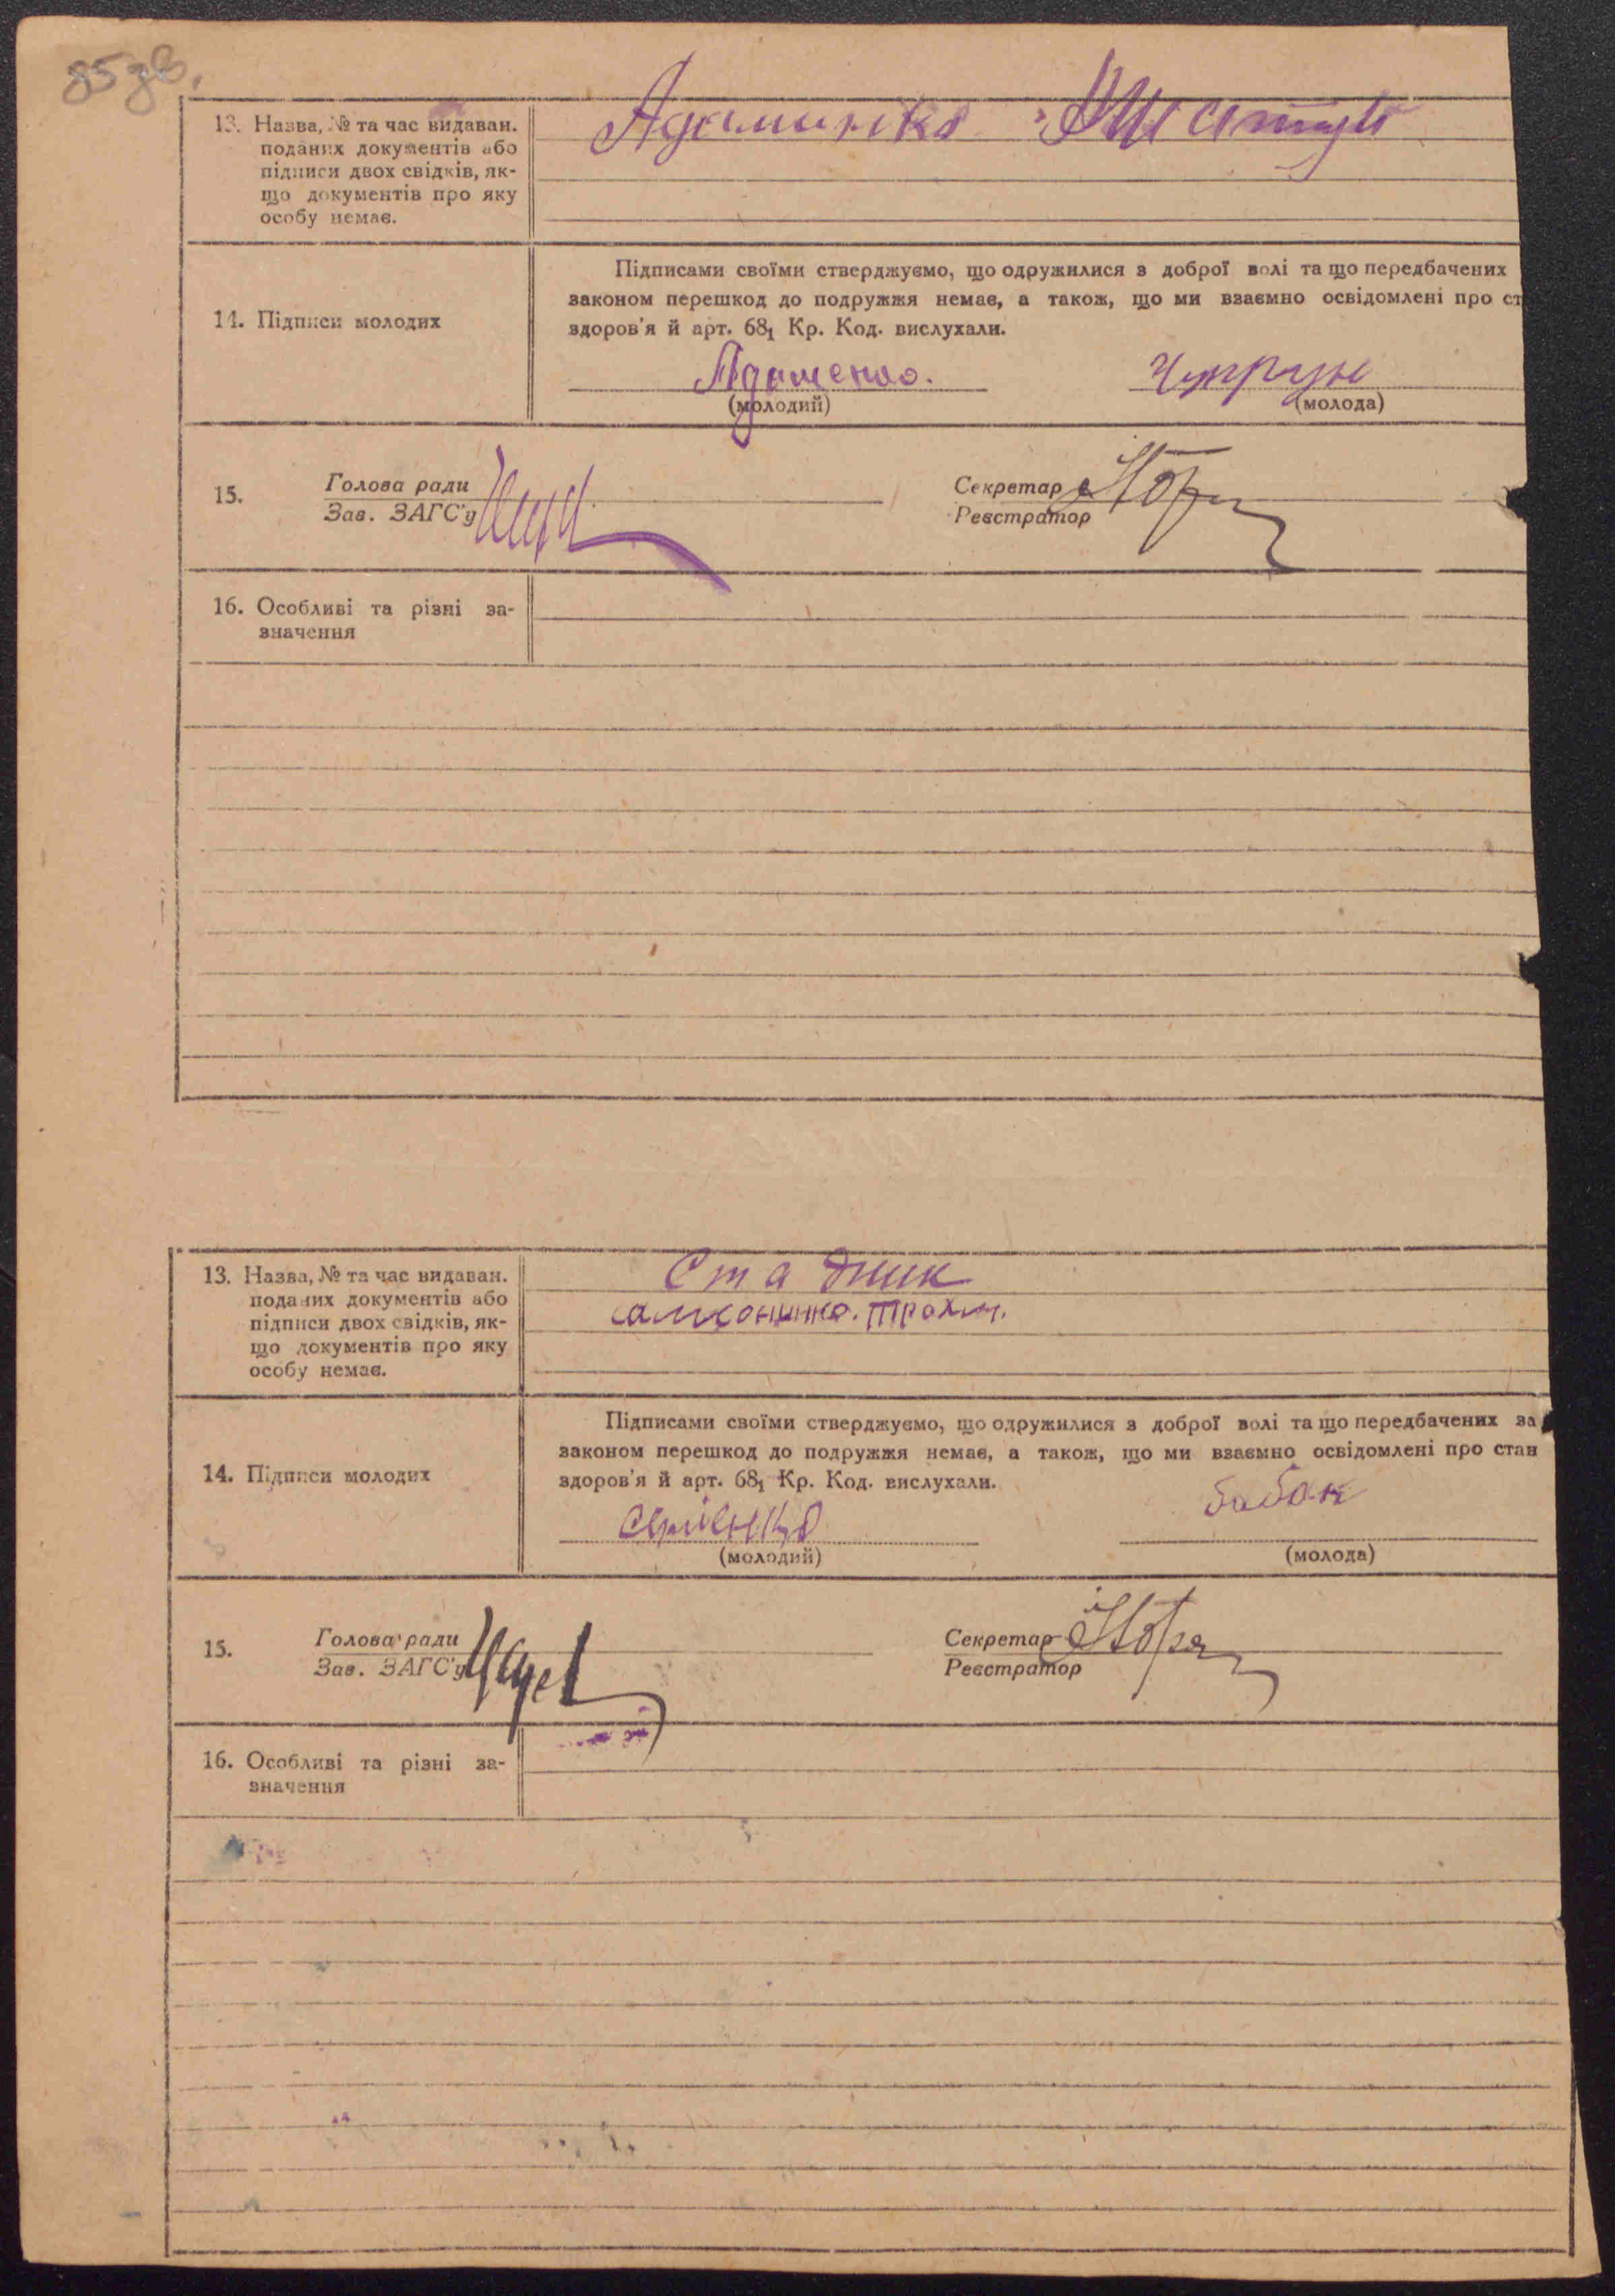 85 зв.
13. Назва, № та час видаван.
поданих документів або
підписи двох свідків, як-
що документів про яку
особу немає.
14. Підписи молодих
Підписами своїми стверджуємо, що одружилися з доброї волі та що передбачених
законом перешкод до подружжя немає, а також, що ми взаємно освідомлені про ст
здоров'я й арт. 68₁ Кр. Код. вислухали.
Адаменко. Чупрун
(молодий) (молода)
15. Голова ради Секретар
Зав. ЗАГС'у Реєстратор
16. Особливі та різні за-
значення
13. Назва, № та час видаван.
поданих документів або
підписи двох свідків, як-
що документів про яку
особу немає.
Стадник
14. Підписи молодих
Підписами своїми стверджуємо, що одружилися з доброї волі та що передбачених за
законом перешкод до подружжя немає, а також, що ми взаємно освідомлені про стан
здоров'я й арт. 68₁ Кр. Код. вислухали.
бабак
(молодий) (молода)
15. Голова ради Секретар
Зав. ЗАГС'у Реєстратор
16. Особливі та різні за-
значення